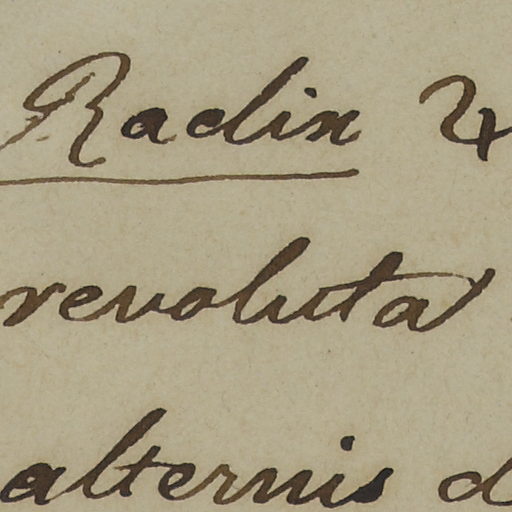 Radix ♃
revoluta
alternis